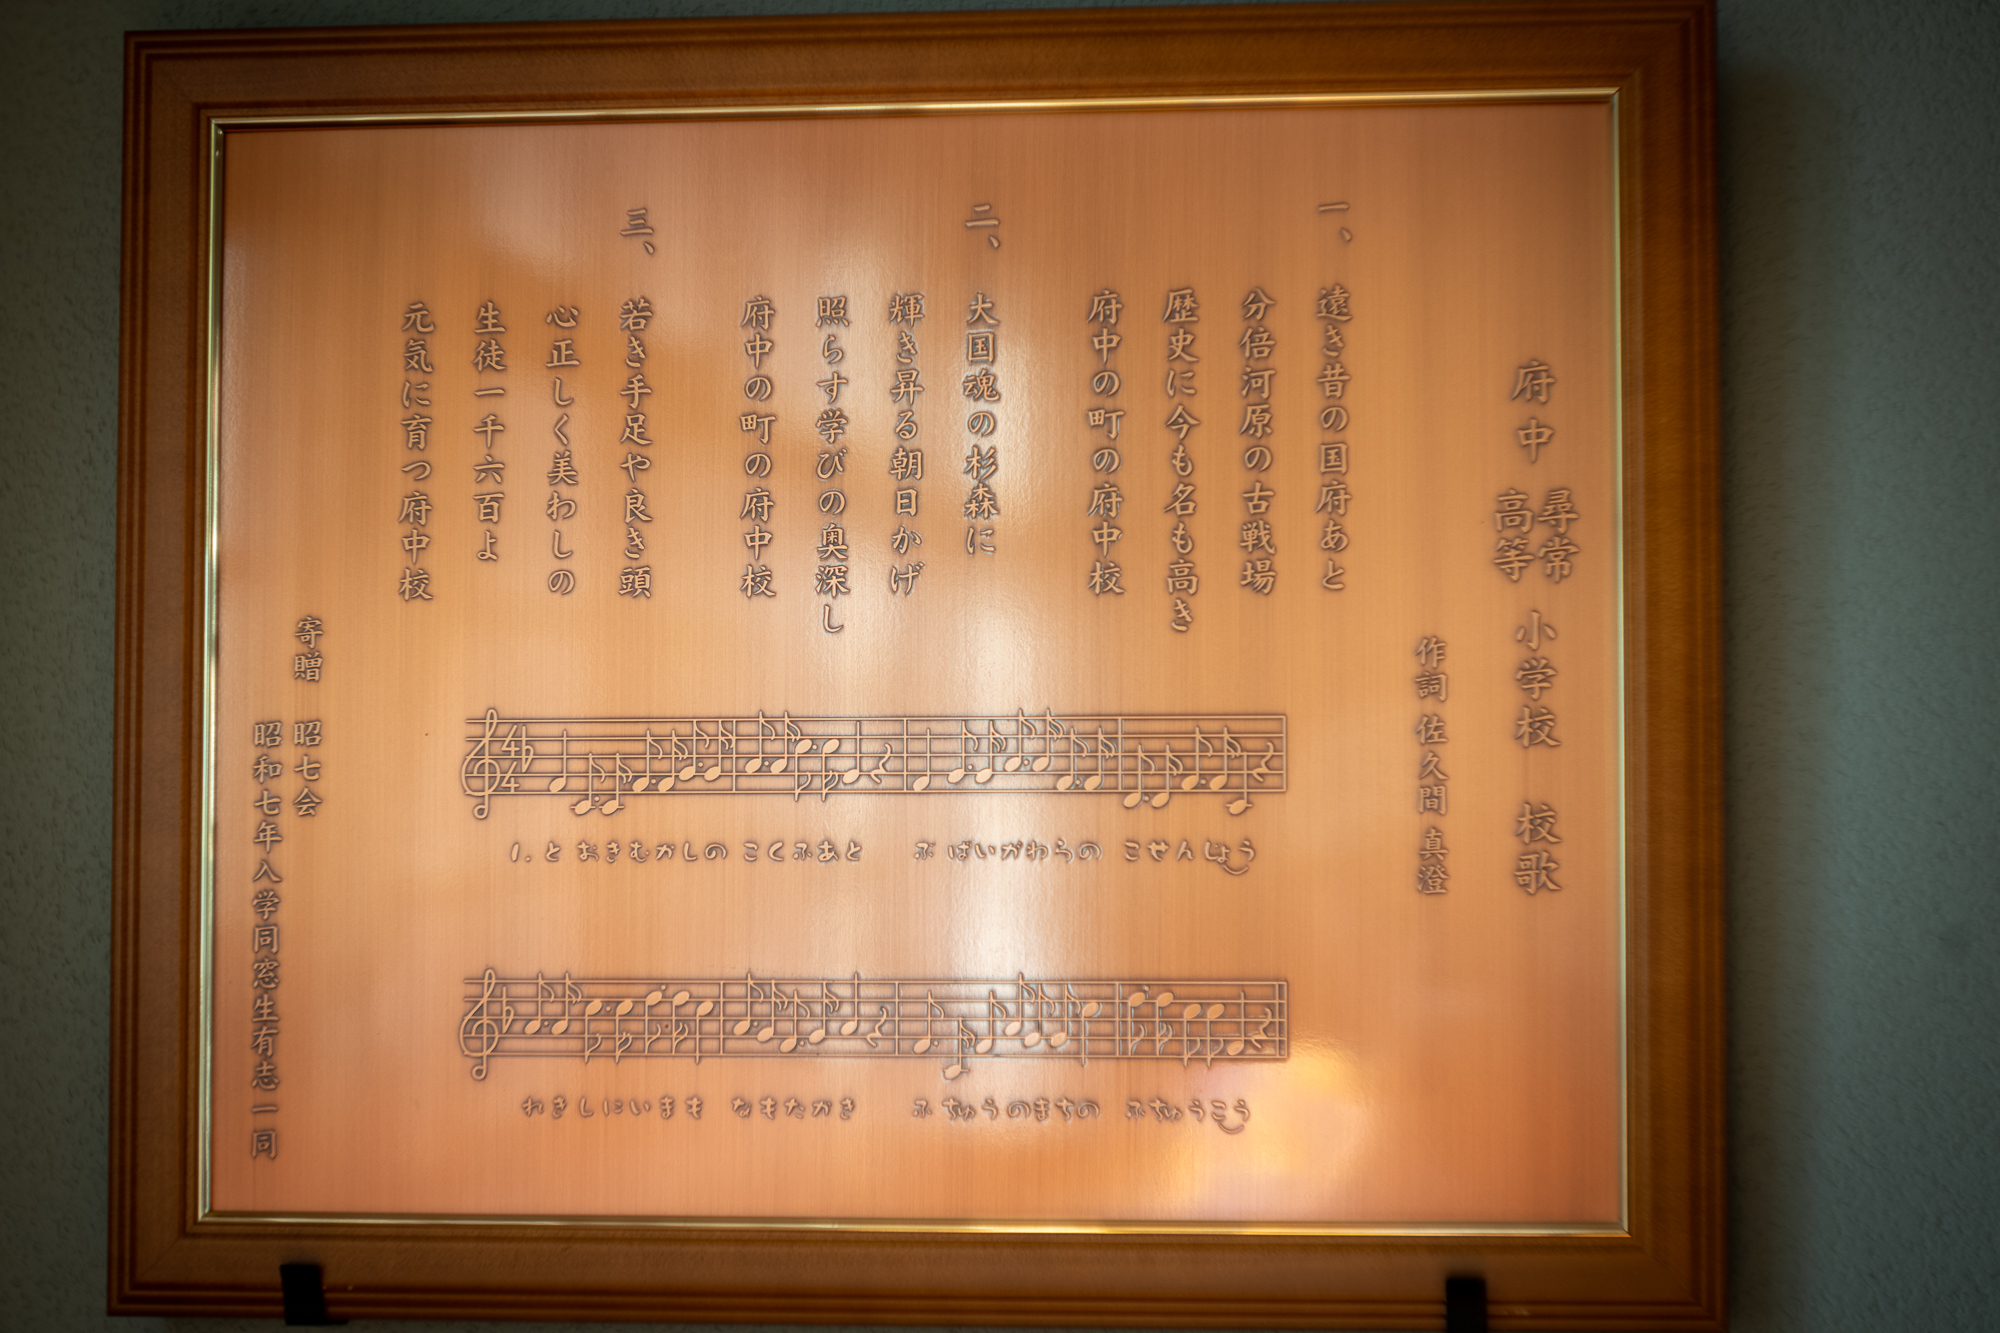 府中 尋常高等 小学校 校歌
作詞 佐久間 真澄
一、遠き昔の国府あと
分倍河原の古戦場
歴史に今も名も高き
府中の町の府中校
二、大国魂の杉森に
輝き昇る朝日かげ
照らす学びの奥深し
府中の町の府中校
三、若き手足や良き頭
心正しく美わしの
生徒一千六百よ
元気に育つ府中校
1. と おきむかしの こくふあと ぶ ばいがわらの こせんじょう
れきしにいまも なもたかき ふ ちゅうのまちの ふちゅうこう
寄贈 昭七会
昭和七年入学同窓生有志一同